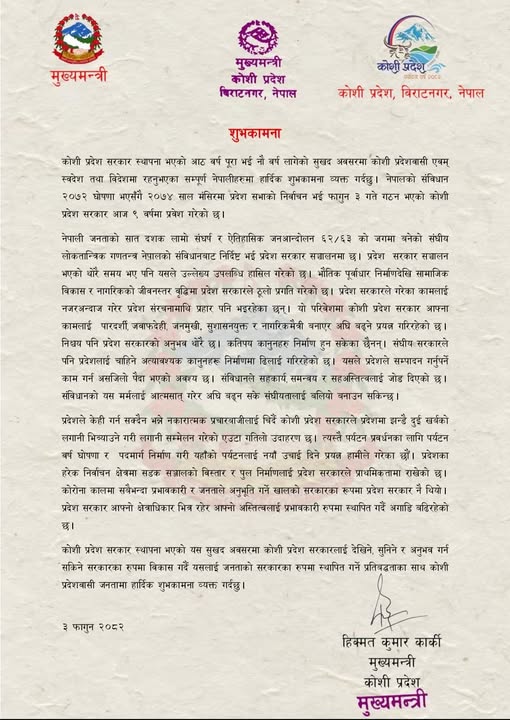 मुख्यमन्त्री
मुख्यमन्त्री
कोशी प्रदेश
विराटनगर, नेपाल
कोशी प्रदेश
कोशी प्रदेश, विराटनगर, नेपाल
शुभकामना
कोशी प्रदेश सरकार स्थापना भएको आठ वर्ष पूरा भई नौ वर्ष लागेको सुखद अवसरमा कोशी प्रदेशवासी एवम्
स्वदेश तथा विदेशमा रहनुभएका सम्पूर्ण नेपालीहरुमा हार्दिक शुभकामना व्यक्त गर्दछु । नेपालको संविधान
२०७२ घोषणा भएसँगै २०७४ साल मंसिरमा प्रदेश सभाको निर्वाचन भई फागुन ३ गते गठन भएको कोशी
प्रदेश सरकार आज ९ वर्षमा प्रवेश गरेको छ ।
नेपाली जनताको सात दशक लामो संघर्ष र ऐतिहासिक जनआन्दोलन ६२/६३ को जगमा बनेको संघीय
लोकतान्त्रिक गणतन्त्र नेपालको संविधानबाट निर्दिष्ट भई प्रदेश सरकार सञ्चालनमा छ । प्रदेश सरकार सञ्चालन
भएको थोरै समय भए पनि यसले उल्लेख्य उपलब्धि हासिल गरेको छ । भौतिक पूर्वाधार निर्माणदेखि सामाजिक
विकास र नागरिकको जीवनस्तर वृद्धिमा प्रदेश सरकारले ठूलो प्रगति गरेको छ । प्रदेश सरकारले गरेका कामलाई
नजरअन्दाज गरेर प्रदेश संरचनामाथि प्रहार पनि भइरहेका छन् । यो परिवेशमा कोशी प्रदेश सरकार आफ्ना
कामलाई पारदर्शी, जवाफदेही, जनमुखी, सुशासनयुक्त र नागरिकमैत्री बनाएर अघि बढ्ने प्रयत्न गरिरहेको छ ।
निश्चय पनि प्रदेश सरकारको अनुभव थोरै छ । कतिपय कानुनहरु निर्माण हुन सकेका छैनन् । संघीय सरकारले
पनि प्रदेशलाई चाहिने अत्यावश्यक कानुनहरू निर्माणमा ढिलाई गरिरहेको छ । यसले प्रदेशले सम्पादन गर्नुपर्ने
काम गर्न असजिलो पैदा भएको अवश्य छ । संविधानले सहकार्य, समन्वय र सहअस्तित्वलाई जोड दिएको छ ।
संविधानको यस मर्मलाई आत्मसात् गरेर अघि बढ्न सके संघीयतालाई बलियो बनाउन सकिन्छ ।
प्रदेशले केही गर्न सक्दैन भन्ने नकारात्मक प्रचारबाजीलाई चिर्दै कोशी प्रदेश सरकारले प्रदेशमा झन्डै दुई खर्बको
लगानी भित्र्याउने गरी लगानी सम्मेलन गरेको एउटा गतिलो उदाहरण छ । त्यस्तै पर्यटन प्रवर्धनका लागि पर्यटन
वर्ष घोषणा र पदमार्ग निर्माण गरी यहाँको पर्यटनलाई नयाँ उचाई दिने प्रयत्न हामीले गरेका छौं । प्रदेशका
हरेक निर्वाचन क्षेत्रमा सडक सञ्जालको विस्तार र पुल निर्माणलाई प्रदेश सरकारले प्राथमिकतामा राखेको छ ।
कोरोना कालमा सबैभन्दा प्रभावकारी र जनताले अनुभूति गर्ने खालको सरकारका रुपमा प्रदेश सरकार नै थियो ।
प्रदेश सरकार आफ्नो क्षेत्राधिकार भित्र रहेर आफ्नो अस्तित्वलाई प्रभावकारी रुपमा स्थापित गर्दै अगाडि बढिरहेको
छ ।
कोशी प्रदेश सरकार स्थापना भएको यस सुखद अवसरमा कोशी प्रदेश सरकारलाई देखिने, सुनिने र अनुभव गर्न
सकिने सरकारका रुपमा विकास गर्दै यसलाई जनताको सरकारका रुपमा स्थापित गर्ने प्रतिबद्धताका साथ कोशी
प्रदेशवासी जनतामा हार्दिक शुभकामना व्यक्त गर्दछु ।
३ फागुन २०८२
हिक्मत कुमार कार्की
मुख्यमन्त्री
कोशी प्रदेश
मुख्यमन्त्री